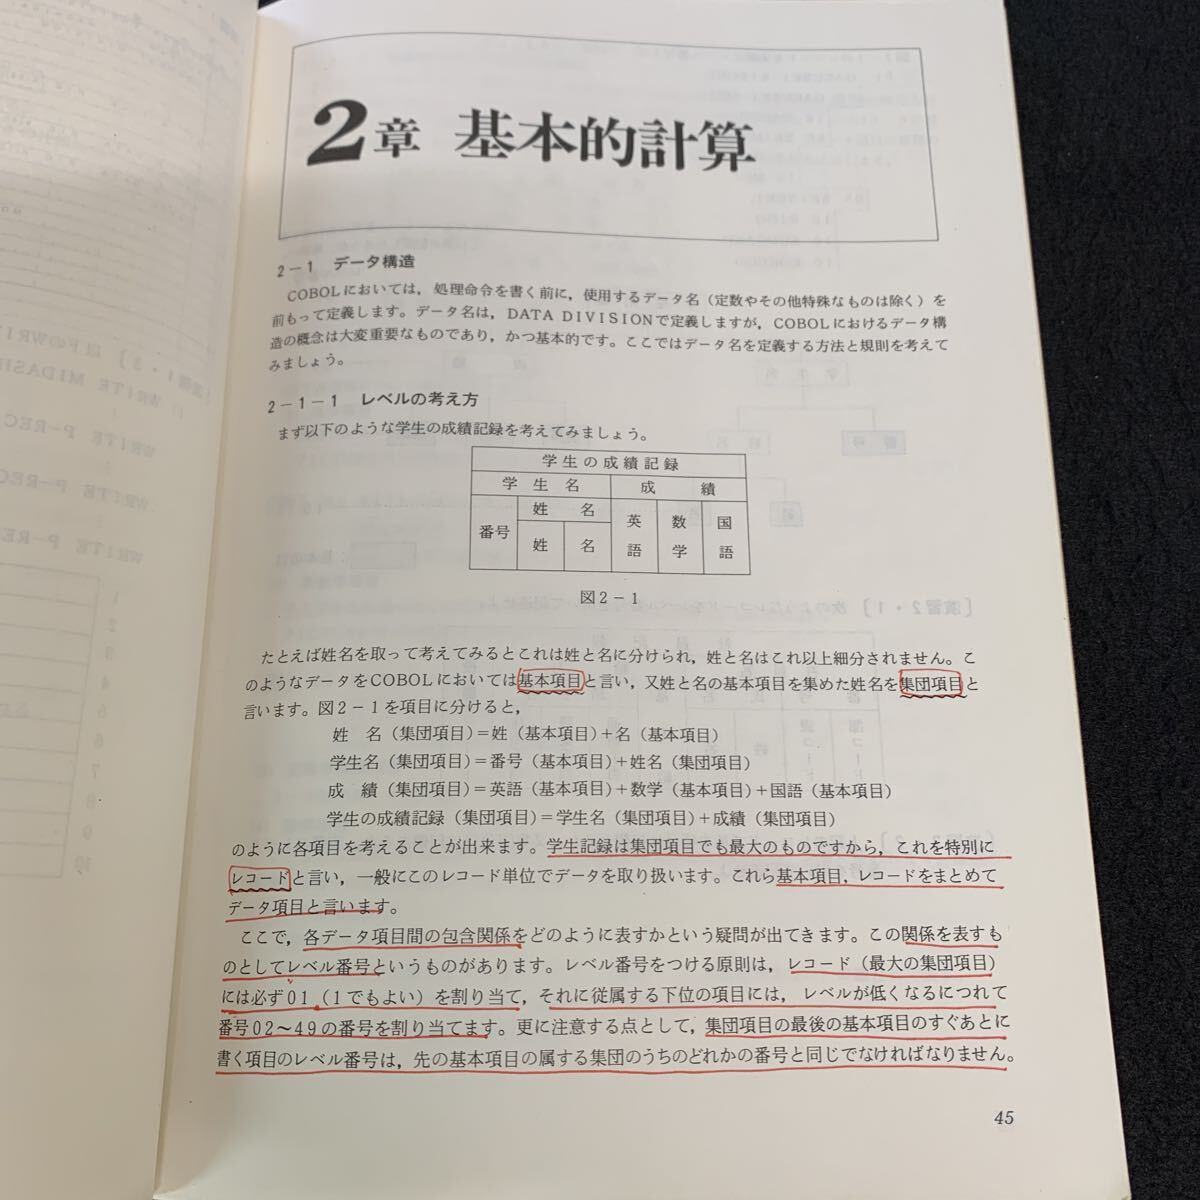 2章 基本的計算
2－1 データ構造
COBOLにおいては，処理命令を書く前に，使用するデータ名（定数やその他特殊なものは除く）を
前もって定義します。データ名は，DATA DIVISIONで定義しますが，COBOLにおけるデータ構
造の概念は大変重要なものであり，かつ基本的です。ここではデータ名を定義する方法と規則を考えて
みましょう。
2－1－1 レベルの考え方
まず以下のような学生の成績記録を考えてみましょう。
学生の成績記録
学生名 成績
番号 姓名 英語 数学 国語
姓 名
図2－1
たとえば姓名を取って考えてみるとこれは姓と名に分けられ，姓と名はこれ以上細分されません。こ
のようなデータをCOBOLにおいては基本項目と言い，又姓と名の基本項目を集めた姓名を集団項目と
言います。図2－1を項目に分けると，
姓 名（集団項目）＝姓（基本項目）＋名（基本項目）
学生名（集団項目）＝番号（基本項目）＋姓名（集団項目）
成 績（集団項目）＝英語（基本項目）＋数学（基本項目）＋国語（基本項目）
学生の成績記録（集団項目）＝学生名（集団項目）＋成績（集団項目）
のように各項目を考えることが出来ます。学生記録は集団項目でも最大のものですから，これを特別に
レコードと言い，一般にこのレコード単位でデータを取り扱います。これら基本項目，レコードをまとめて
データ項目と言います。
ここで，各データ項目間の包含関係をどのように表すかという疑問が出てきます。この関係を表すも
のとしてレベル番号というものがあります。レベル番号をつける原則は，レコード（最大の集団項目）
には必ず01（1でもよい）を割り当て，それに従属する下位の項目には，レベルが低くなるにつれて
番号02～49の番号を割り当てます。更に注意する点として，集団項目の最後の基本項目のすぐあとに
書く項目のレベル番号は，先の基本項目の属する集団のうちのどれかの番号と同じでなければなりません。
45